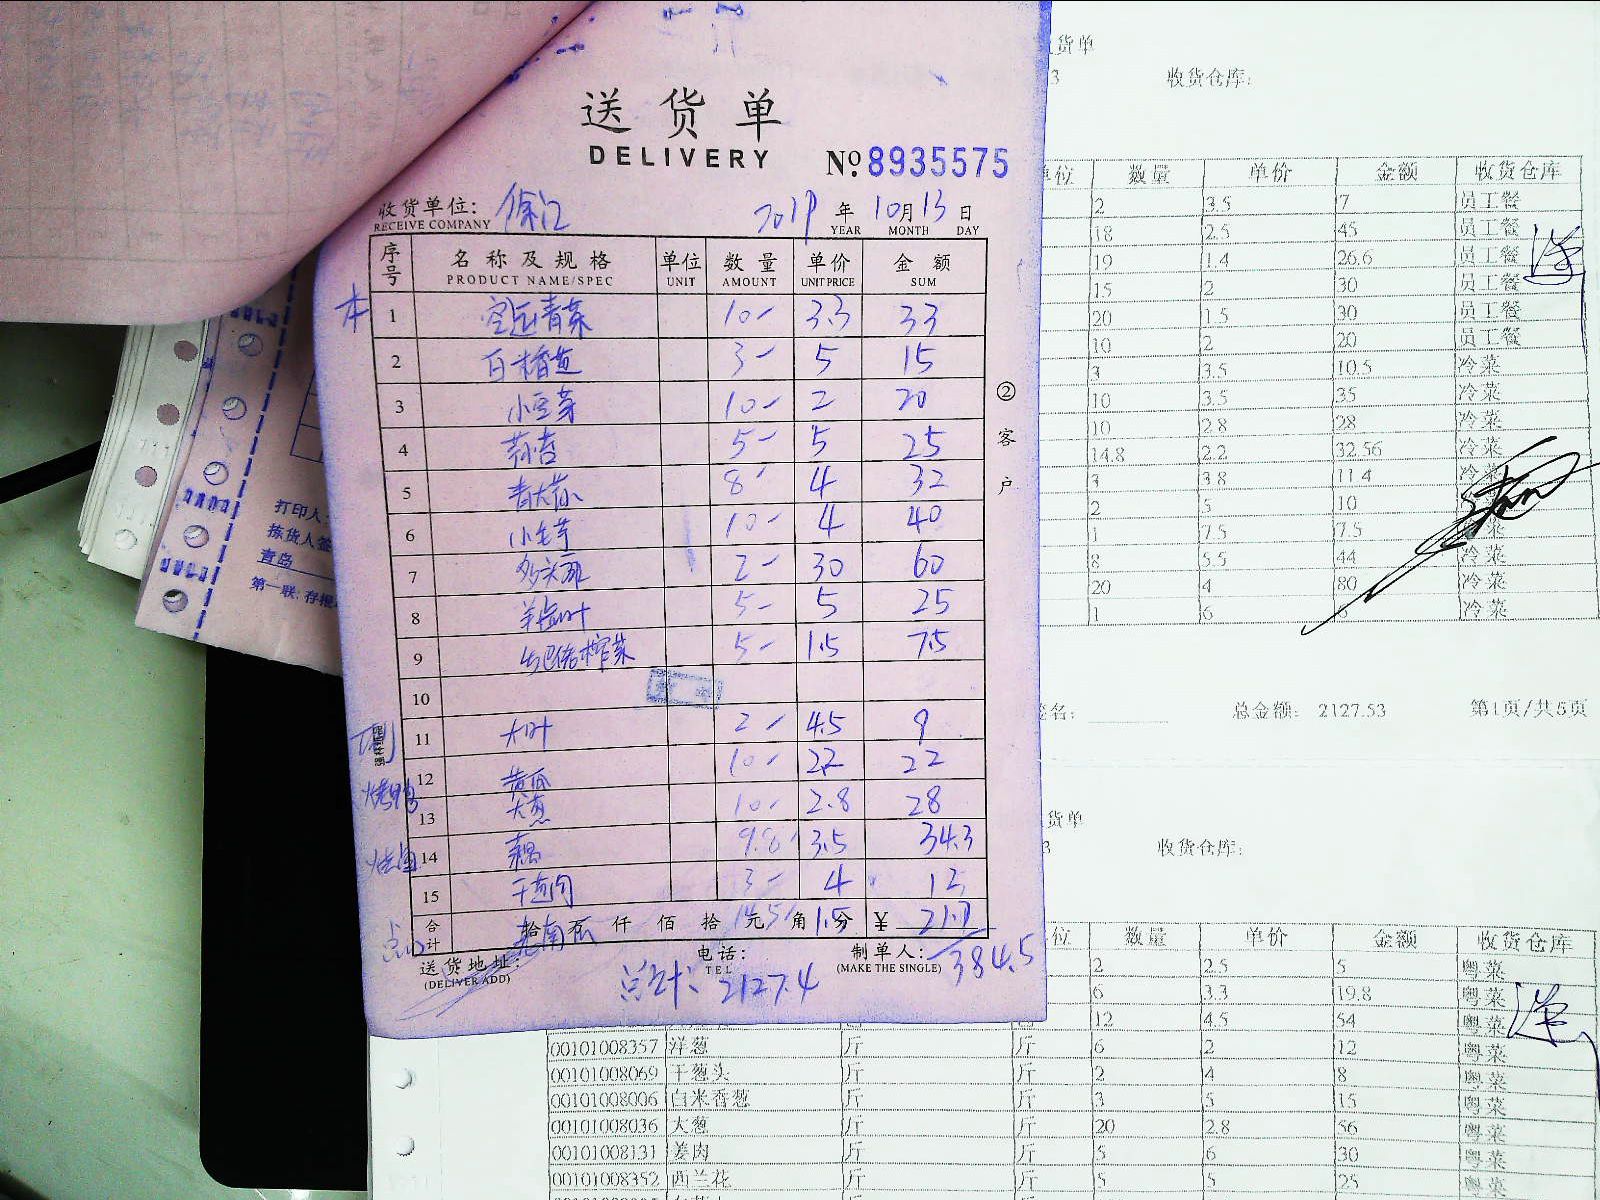 送货单
DELIVERY
No. 8935575
收货单位: 徐汇
RECEIVE COMPANY
2019 年 10 月 13 日
YEAR MONTH DAY
序号 名称及规格 单位 数量 单价 金额
PRODUCT NAME/SPEC UNIT AMOUNT UNIT PRICE SUM
本 1 青菜 10- 3.3 33
2 百 3- 5 15
3 小豆芽 10- 2 20
4 5- 5 25
5 8- 4 32
6 小毛芋 10- 4 40
7 2- 30 60
8 叶 5- 5 25
9 榨菜 5- 1.5 7.5
10
11 大叶 2- 4.5 9
烤鸭 12 黄瓜 10- 2.2 22
13 大葱 10- 2.8 28
14 9.8- 3.5 34.3
15 干葱肉 3- 4 12
点心 合计 老南瓜 拾 万 仟 佰 拾 14.5- 元 角 1.5 分 ¥ 21.7
送货地址:
(DELIVER ADD)
电话:
TEL
制单人:
(MAKE THE SINGLE)
384.5
总计: 2127.4
②客户
打印人
拣货人签
青岛
第一联:存根
货单
3 收货仓库:
单位 数量 单价 金额 收货仓库
2 3.5 7 员工餐
18 2.5 45 员工餐
19 1.4 26.6 员工餐
15 2 30 员工餐
20 1.5 30 员工餐
10 2 20 员工餐
3 3.5 10.5 冷菜
10 3.5 35 冷菜
10 2.8 28 冷菜
14.8 2.2 32.56 冷菜
3 3.8 11.4 冷菜
2 5 10
1 7.5 7.5 冷菜
8 5.5 44 冷菜
20 4 80 冷菜
1 6 冷菜
签名: 总金额: 2127.53 第1页/共5页
货单
3 收货仓库:
单位 数量 单价 金额 收货仓库
2 2.5 5 粤菜
6 3.3 19.8 粤菜
12 4.5 54 粤菜
00101008357 洋葱 斤 斤 6 2 12 粤菜
00101008069 干葱头 斤 斤 2 4 8 粤菜
00101008006 白米香葱 斤 斤 3 5 15 粤菜
00101008036 大葱 斤 斤 20 2.8 56 粤菜
00101008131 姜肉 斤 斤 5 6 30 粤菜
00101008352 西兰花 斤 斤 5 5 25 粤菜